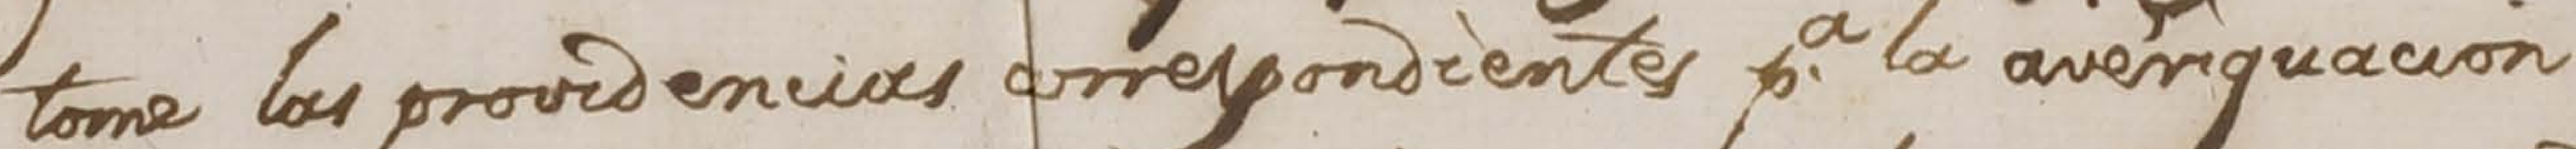 tome las providencias correspondientes p.a la averiguacion